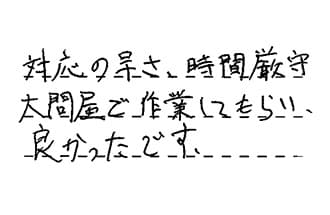 対応の早さ、時間厳守
大問屋で作業してもらい、
良かったです。